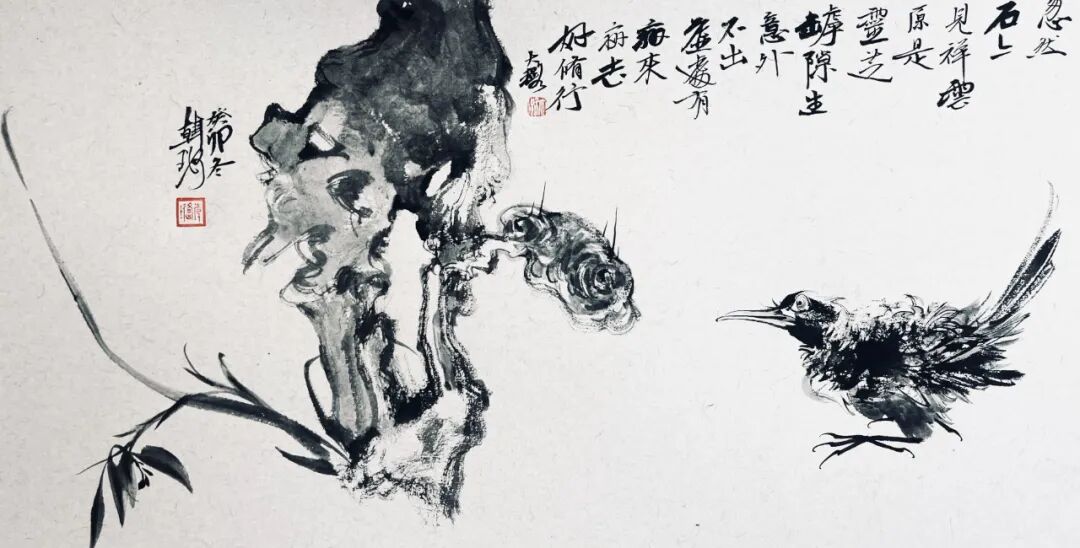 忽然
石上
見祥雲
原是
靈芝
罅隙生
意外
不出
處有
病來
病去
好脩行
癸卯冬
韓